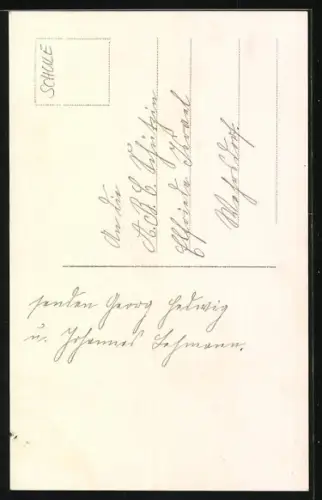 SCHULE
An die
A.B.C. Schützin
Elfriede Israel
Wehrsdorf.
senden Georg Hedwig
u. Johannes Lehmann.